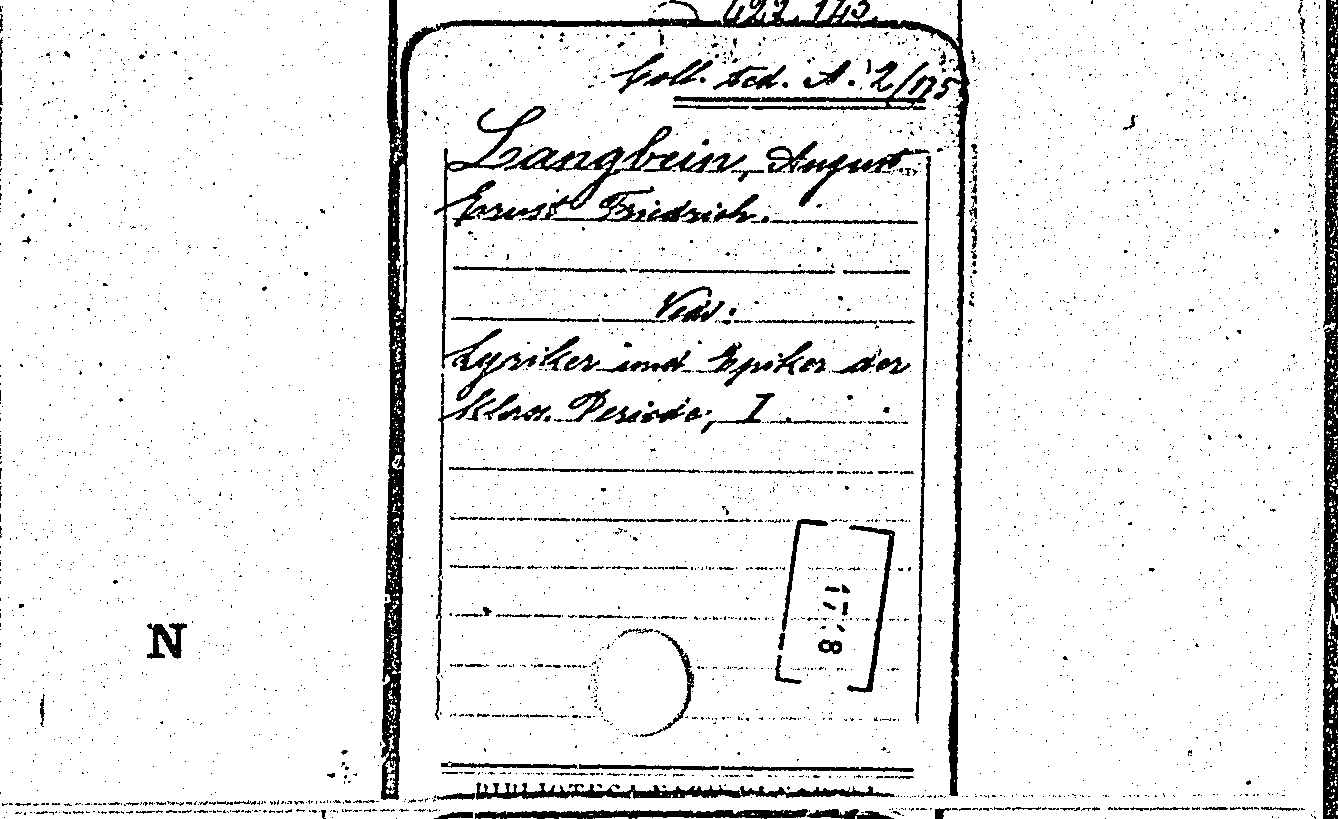 422.143.
Coll. ted. A. 2/175
Langbein, August
Ernst Friedrich.
Vedi:
Lyriker und Epiker der
klass. Periode, I.
17.'8
N
BIBLIOTECA